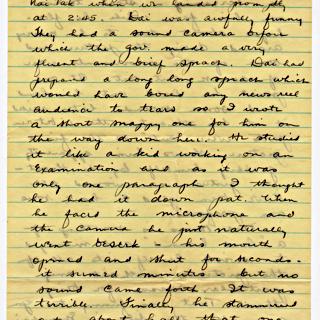 Hai Tak when we landed promptly
at 2:45. Dai was awfully funny
They had a sound camera before
which the gov. made a very
fluent and brief speach. Dai had
prepared a long long speach which
would have bored any newsreel
audience to tears so I wrote
a short snappy one for him on
the way down here. He studied
it like a kid working on an
Examination and as it was
only one paragraph I thought
he had it down pat. When
he faced the microphone and
the camera he just naturally
went beserk - his mouth
opened and shut for seconds -
it semed minutes - but no
sound came forth. It was
terrible. Finally he stammered
out about half that one